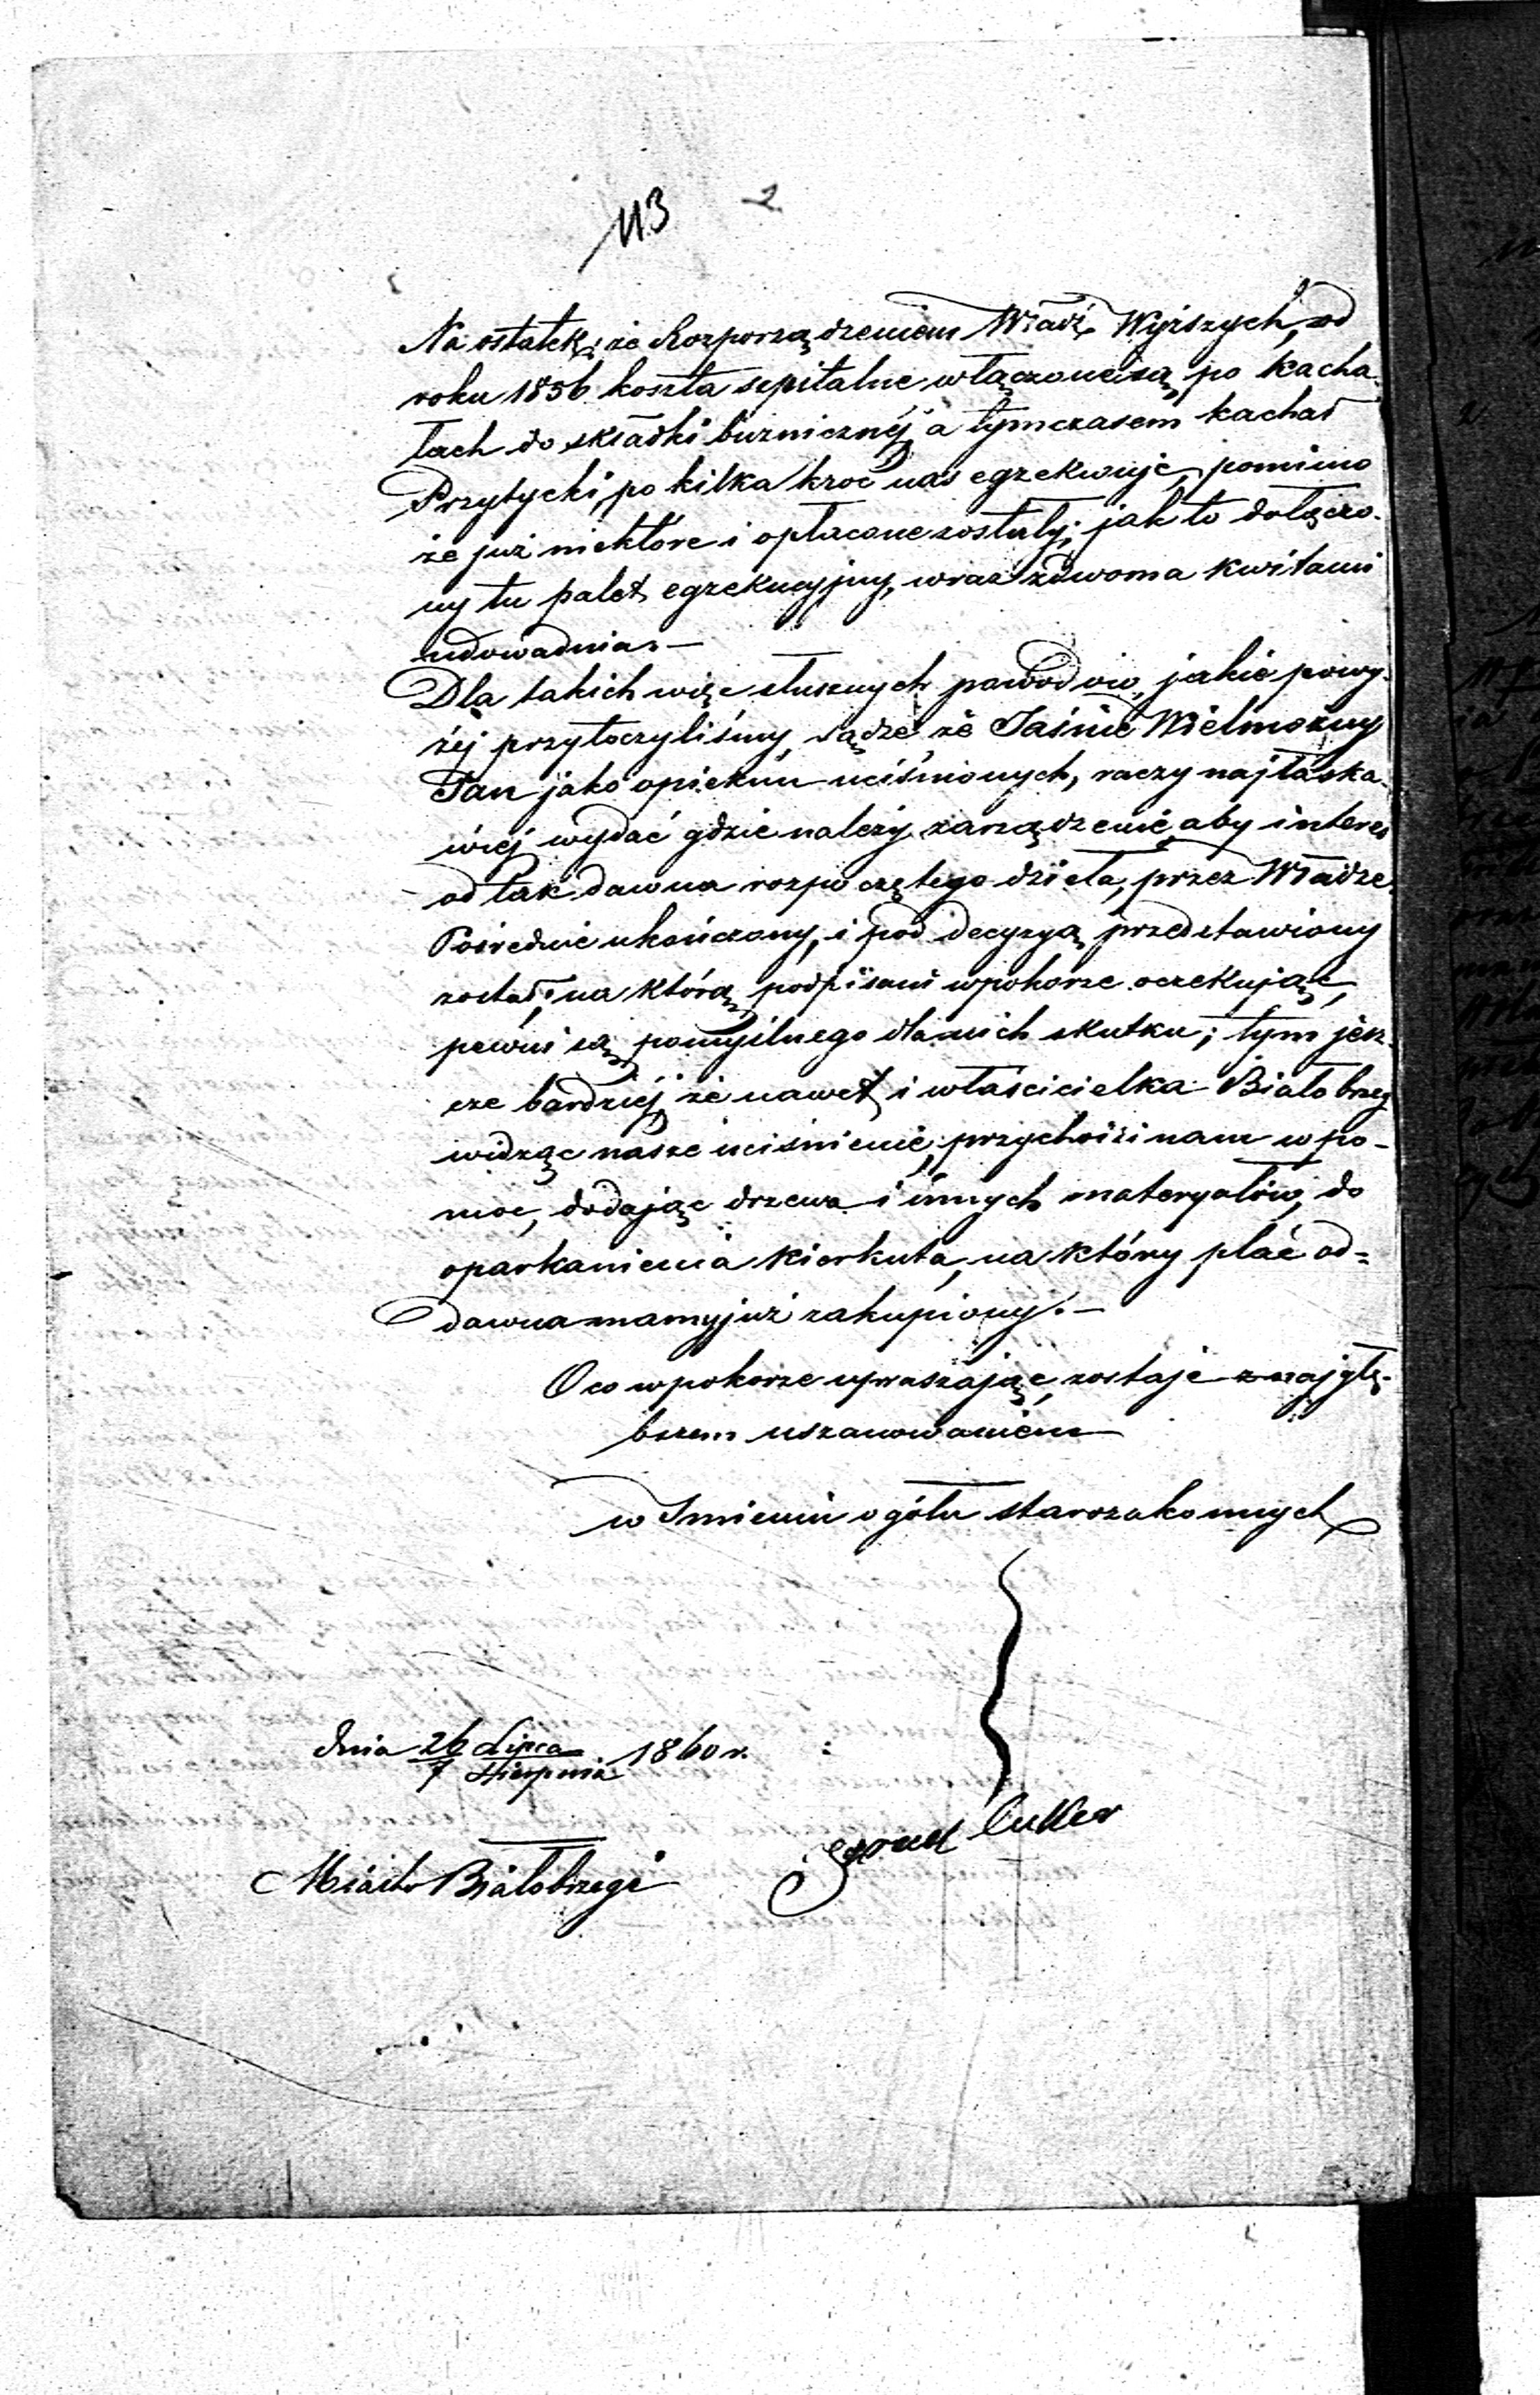 113 2
Na ostatek; że Rozporządzeniem Władz Wyższych, od
roku 1856 koszta szpitalne włączone są, po kacha-
łach do składki bużnicznéj, a tymczasem kachał
Przytycki, po kilka kroć nas egzekwuje, pomimo
że już niektóre i opłacone zostały; jak to dołączo-
ny tu palet egzekucyjny, wraz zdwoma kwitami
udowadnia. —
Dla takich więc słusznych powodów, jakie powy-
żéj przytoczyliśmy, sądzę że Jaśnie Wielmożny
Pan jako opiekun uciśnionych, raczy najłaska-
wiéj wydać gdzie należy zarządzenie, aby interes
od tak dawna rozpoczętego dzieła, przez Władze
Pośrednie ukończony, i pod decyzyą przedstawiony
został; na którą podpisani wpokorze oczekując,
pewni są pomyślnego dla nich skutku; tym jesz-
cze bardziéj, że nawet i właścicielka Białobrzeg
widząc nasze uciśnienie, przychodzi nam w po-
moc, dodając drzewa i innych materyałów, do
oparkanienia Kierkuta, na który plac od-
dawna mamy już zakupiony. —
O co wpokorze upraszając, zostaje z najgłę-
bszem uszanowaniem
w Imieniu ogółu starozakonnych
dnia 26 Lipca / 7 Sierpnia 1860 r.
Cukier
Miasto Białobrzegi